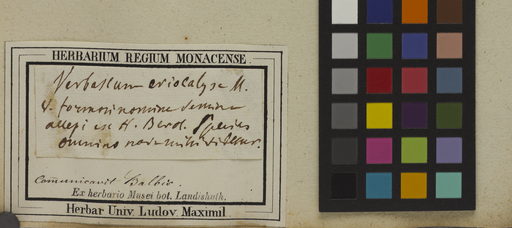 HERBARIUM REGIUM MONACENSE.
Verbascum eriocalyx M.
formosi nomine semine
accepi ex H. Berol. Species
omnino nova mihi videtur.
Communicavit Balbis.
Ex herbario Musei bot. Landishuth.
Herbar. Univ. Ludov. Maximil